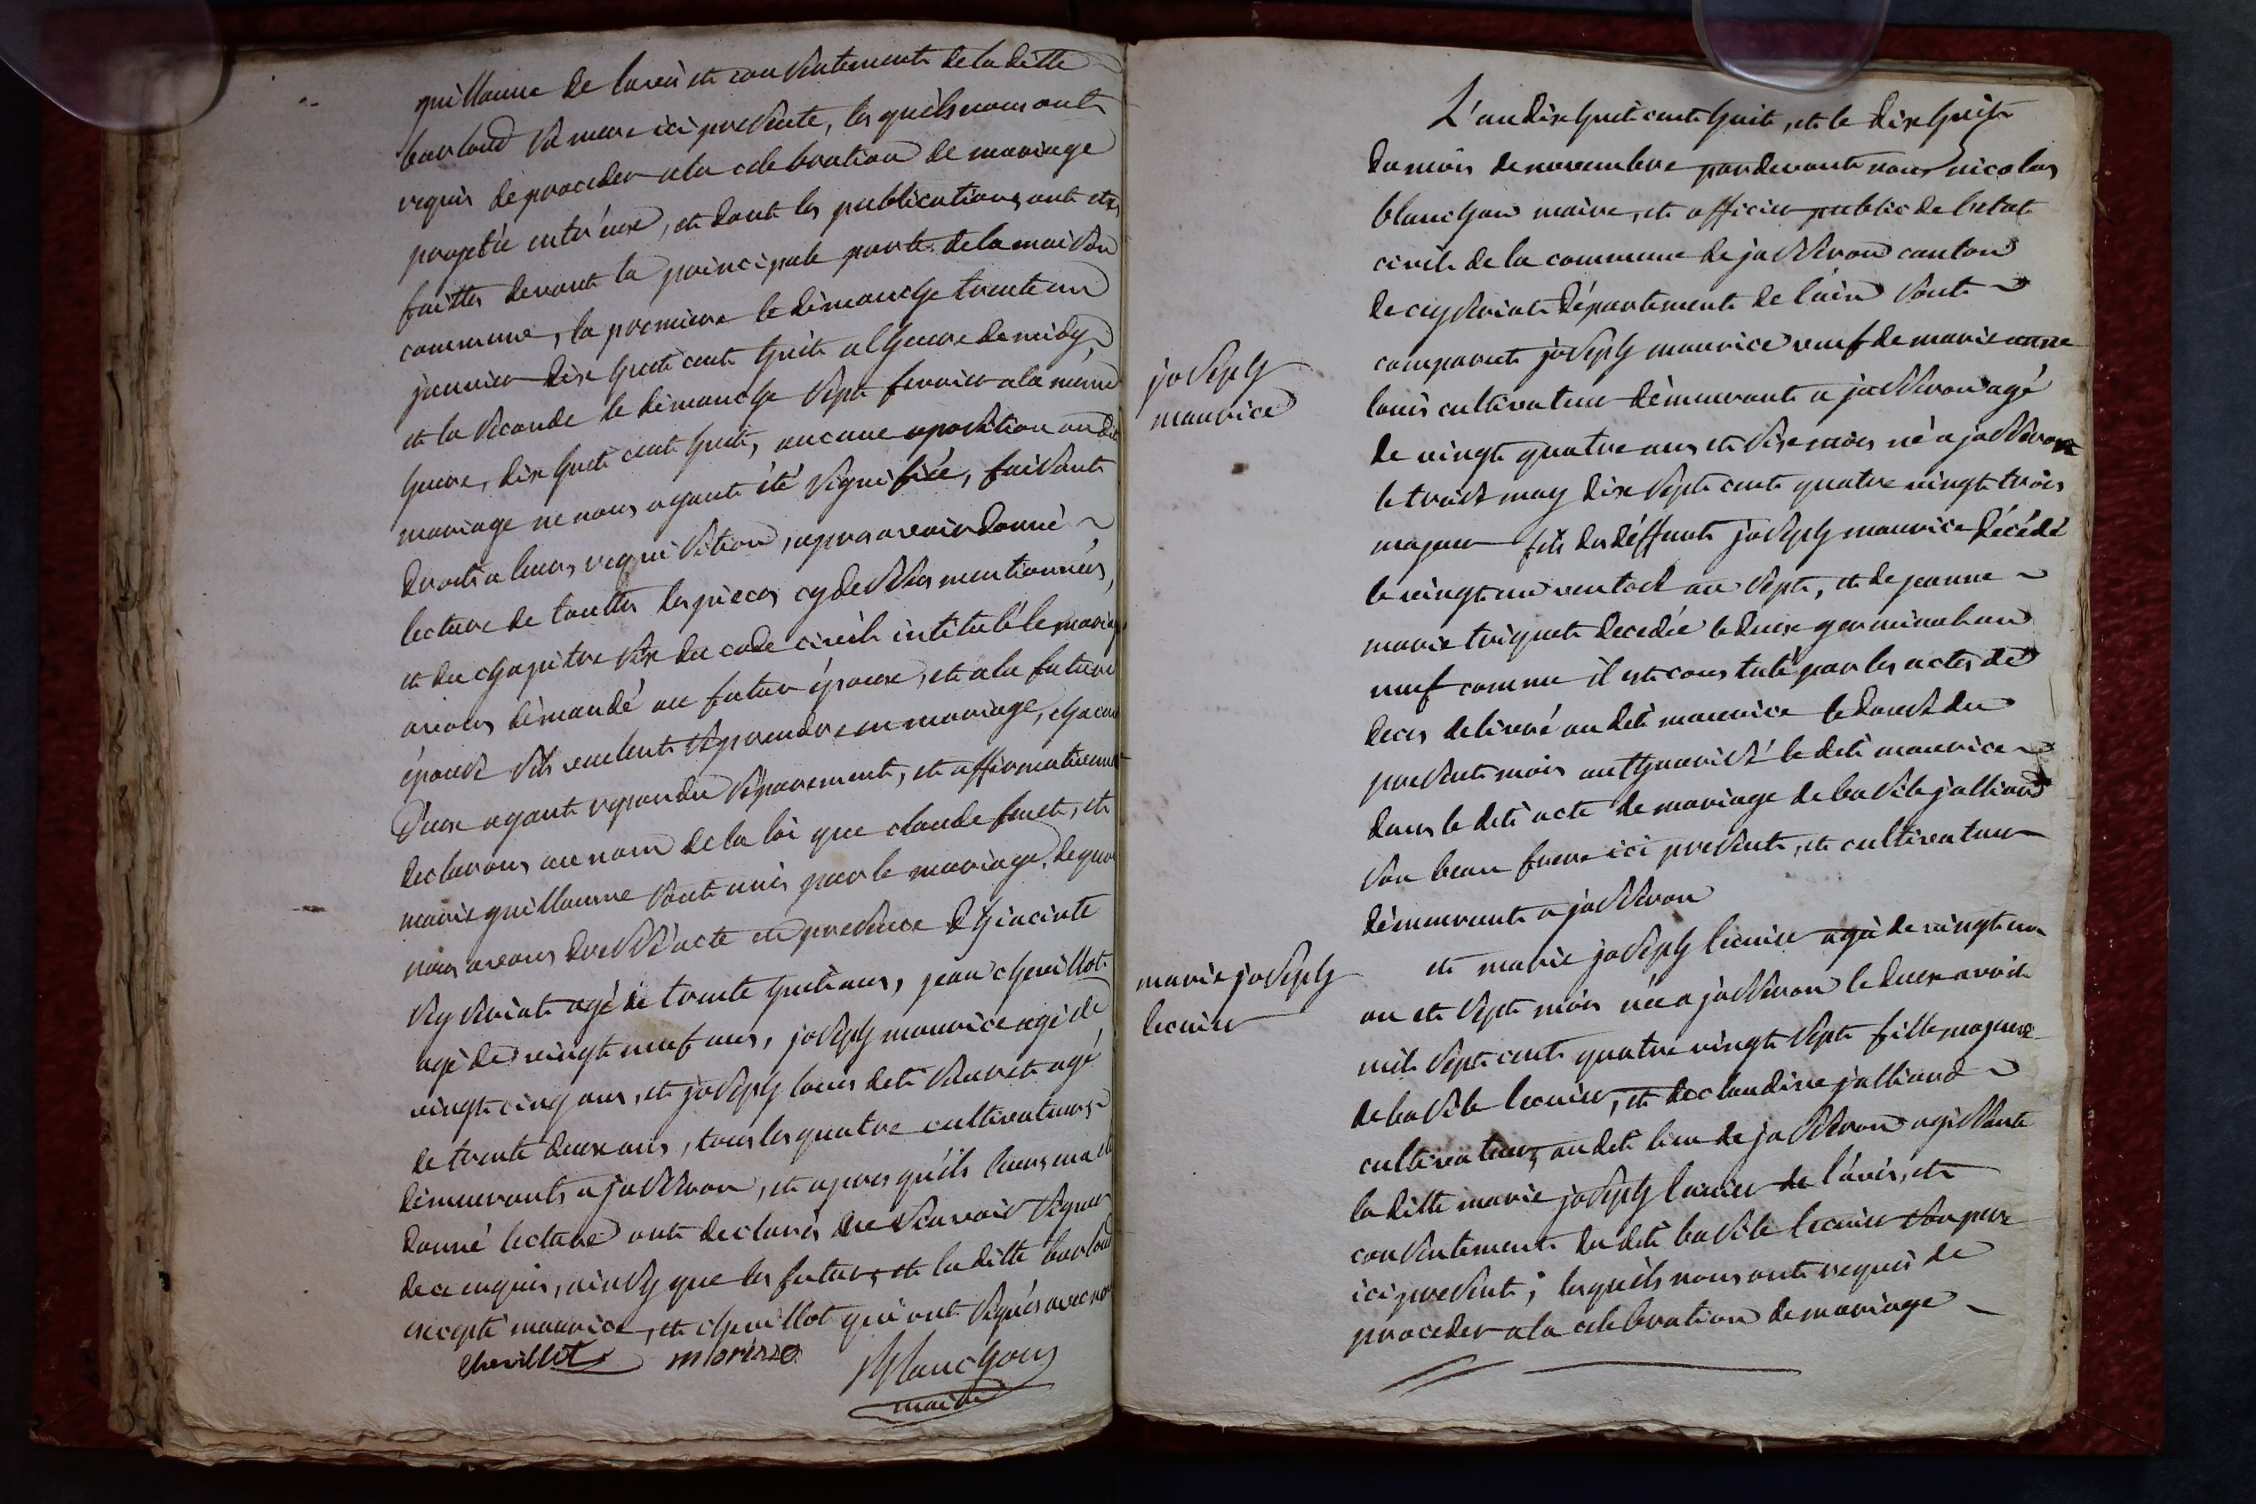 guillaume de lavis et consentement de la ditte
barloud sa mere ici presente, les quels nous ont
requis de proceder a la celebration de mariage
projetée entr'eux, et dont les publications ont etés
faittes devant la principale porte de la maison
commune, la premiere le dimanche trente un
janvier dix huit cent huit a lheure de midy,
et la seconde le dimanche sept fevrier a la meme
heure, dix huit cent huit, aucune oposition au dit
mariage ne nous ayant été signifiée, faisant
droit a leurs requisition, apres avoir donné
lecture de touttes les pieces cy dessus mentionnées,
et du chapitre six du code civil intitulé le mariage
avons démandé au futur époux, et a la future
épouse sils veulent se prendre en mariage, chacun
d'eux ayant repondu séparement, et affirmativement
declarons au nom de la loi que claude et
marie guillaume sont unis par le mariage. de quoi
nous avons dressé acte en presence dhiacinte
agé de trente huit ans, jean chevillot
agé de vingt neuf ans, joseph maurice agé de
vingt cinq ans, et joseph louis dit agé
de trente deux ans, tous les quatre cultivateurs
démeurants a jasseron, et apres qu'ils leurs
donné lecture ont declarés ne scavoir signer
de ce enquis, ainsy que les futurs, et la ditte barloud
excepté maurice, et chevillot qui ont signés avec nous
chevillot
Blanchon
maire
L'an dix huit cent huit, et le dix huit
du mois de novembre pardevant nous nicolas
blanchon maire, et officier public de letat
civil de la commune de jasseron canton
de ceyseriat département de lain sont
joseph
maurice
comparut joseph maurice veuf de marie anne
louis cultivateur démeurant a jasseron agé
de vingt quatre ans et six mois né a jasseron
le trois may dix sept cent quatre vingt trois
majeur fils du déffunt joseph maurice décédé
le vingt un ventose an sept, et de jeanne
marie triquet decedée le deux germinal an
neuf comme il est constaté par les actes de
deces delivré au dit maurice le douse du
present mois authorisé le dit maurice
dans le dit acte de mariage de basile jalliand
son beau frere ici present, et cultivateur
démeurant a jasseron
marie joseph
lecuier
et marie joseph lecuier agé de vingt un
an et sept mois née a jasseron le deux avril
mil sept cent quatre vingt sept fille majeure
de basile lecuier, et de claudine jalliand
cultivateurs au dit lieu de jasseron agissante
la ditte marie joseph lecuier de lávis, et
consentement du dit basile lecuier son pere
ici present; lesquels nous ont requis de
proceder a la celebration de mariage